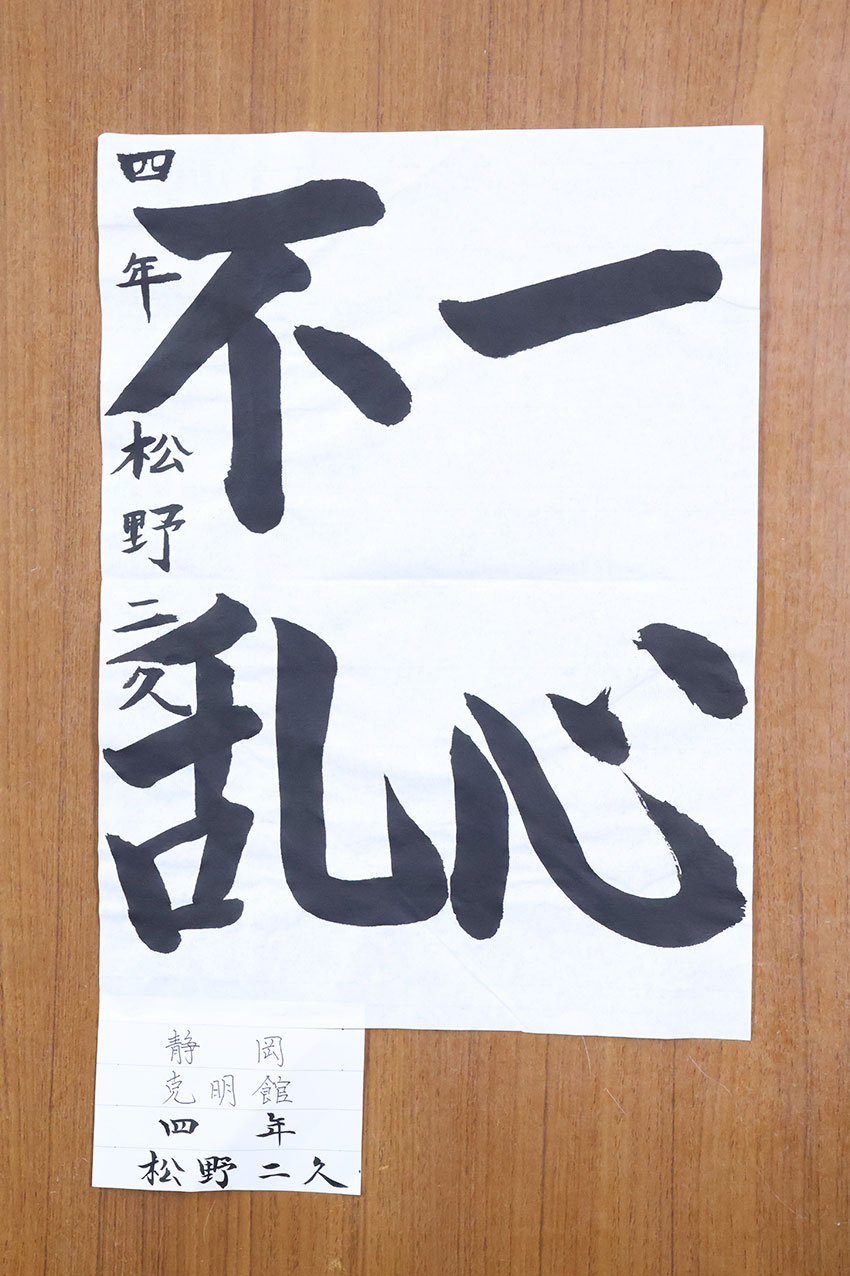 一心
不乱
四年 松野二久
静岡
克明館
四年
松野二久